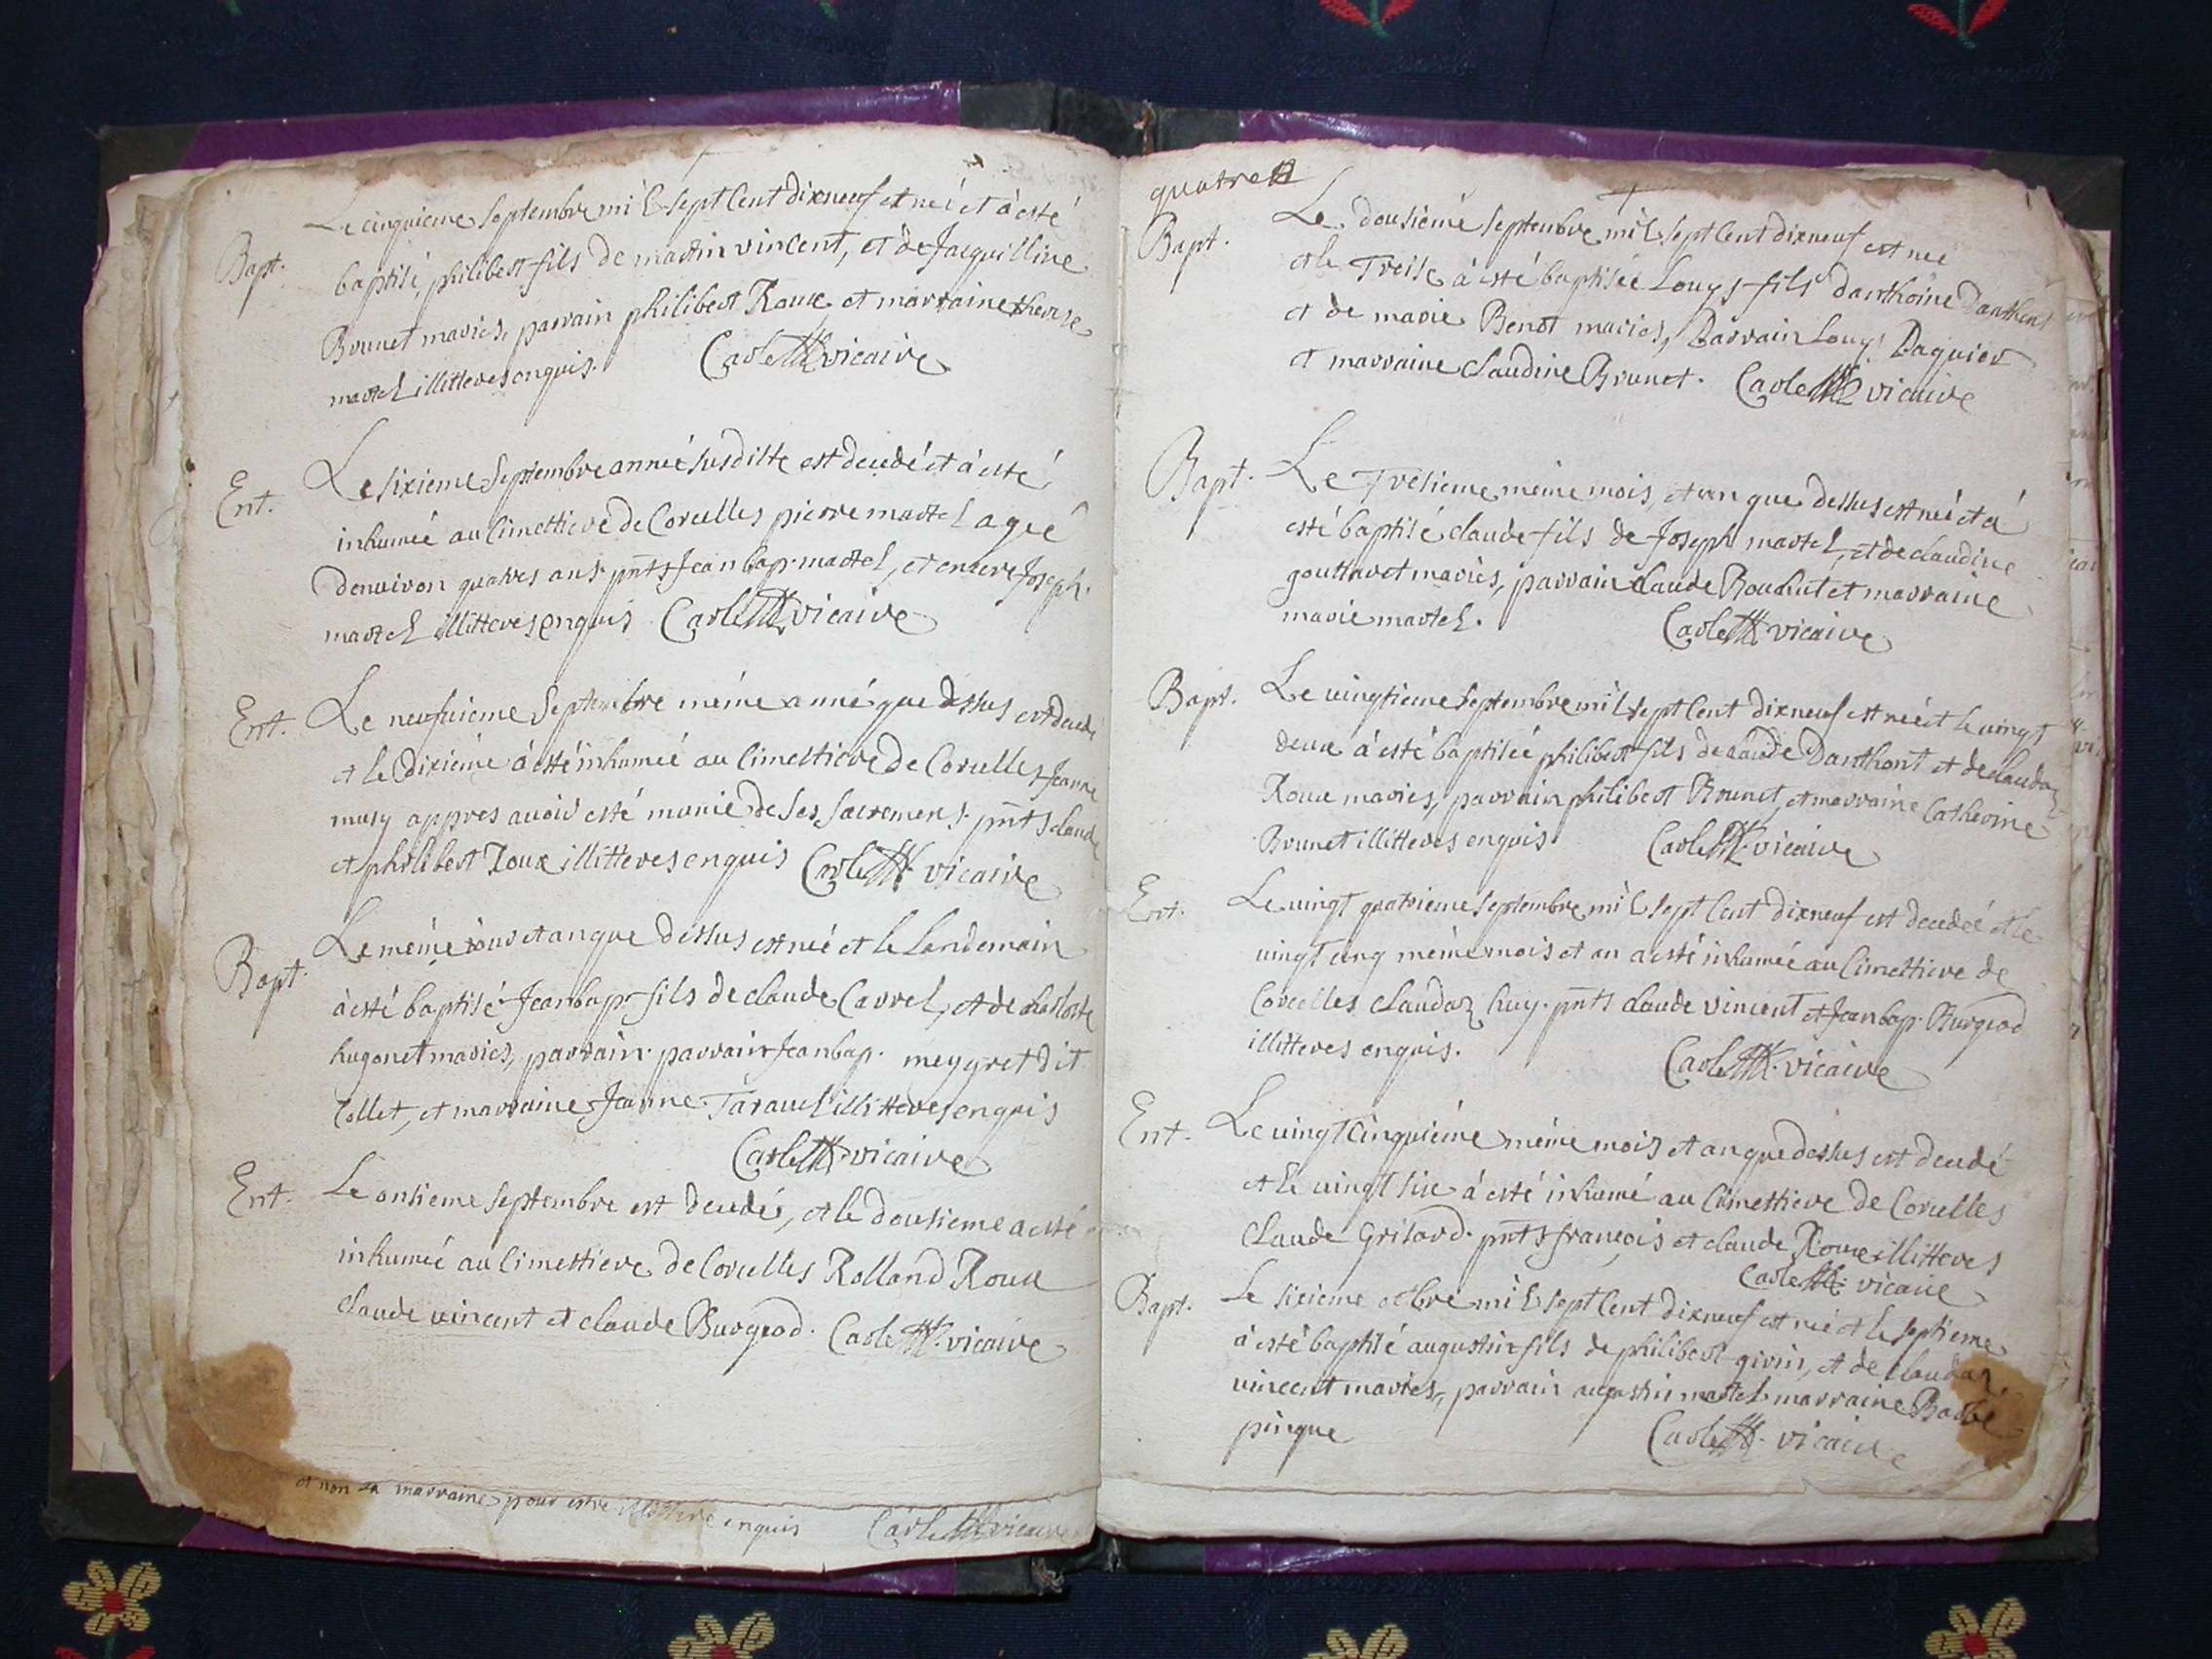 Le cinquieme septembre mil sept cent dixneuf est né et à esté
Bapt. baptisé philibert fils de martin vincent, et de Jacquilline
Brunet mariés, parrain philibert Roux et marraine therese
martel illitteres enquis. Carle vicaire
Le sixieme septembre année susditte est decedé et à esté
Ent. inhumé au Cimettiere de Corcelles pierre martel agé
denuiron quatres ans pnts Jean bap. martel, et encore Joseph
martel illitteres enquis Carle vicaire
Ent. Le neufuieme septembre méme anné que dessus est decedé
et le dixiéme à esté inhumée au Cimettiere de Corcelles Jeanne
musy appres auoir esté munie de ses sacremens. pnts claude
et philibert Roux illitteres enquis Carle vicaire
Le méme iour et an que dessus est né et le Landemain
Bapt. à esté baptisé Jean bap. fils de claude Carrel, et de charlotte
hugonet mariés, parrain parrain Jean bap. meygret dit
Collet, et marraine Jeanne illitteres enquis
Carle vicaire
Ent. Le onsieme septembre est decedé, et le dousieme a esté
inhumé au Cimettiere de Corcelles Rolland Roux
claude vincent et claude Burgeod. Carle vicaire
et non sa marraine pour estre illittere enquis Carle vicaire
quatre
Bapt. Le dousiéme septembre mil sept cent dixneuf est né
et le Treise à esté baptisée Louys fils d'anthoine Danthont
et de marie Benot mariés, Parrain Louys Daguier
et marraine claudine Brunet. Carle vicaire
Bapt. Le Tresieme méme mois, et an que dessus est né et à
esté baptisé claude fils de Joseph martel, et de claudine
gouttaret mariés, parrain claude Rouhut et marraine
marie martel. Carle vicaire
Bapt. Le uingtieme septembre mil sept cent dixneuf est né et le uingt
deux à esté baptisée philibert fils de claude Danthont et de claudaz
Roux mariés, parrain philibert Brunet, et marraine Catherine
Brunet illitteres enquis Carle vicaire
Ent. Le uingt quatrieme septembre mil sept cent dixneuf est decedée et le
uingt cinq méme mois et an a esté inhumée au Cimettiere de
Corcelles claudaz huy. pnts claude vincent et Jean bap. Burgeod
illitteres enquis. Carle vicaire
Ent. Le uingt cinquiéme méme mois et an que dessus est decedé
et le uingt six à esté inhumé au Cimettiere de Corcelles
claude Grisard. pnts françois et claude Roux illitteres
Carle vicaire
Bapt. Le sixieme octbre mil sept cent dixneuf est né et le septieme
à esté baptisé augustin fils de philibert girin, et de claudaz
vincent mariés, parrain augustin martel marraine Barbe
pinque Carle vicaire